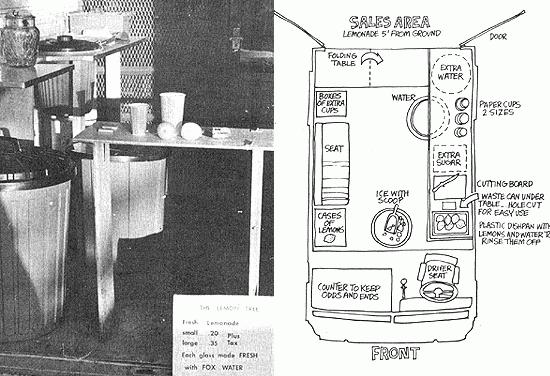 THE LEMON TREE
Fresh Lemonade
small 20 Plus
large 35 Tax
Each glass made FRESH
with FOX WATER
SALES AREA
LEMONADE 5' FROM GROUND
DOOR
FOLDING
TABLE
EXTRA
WATER
BOXES
OF EXTRA
CUPS
WATER
PAPER CUPS
2 SIZES
SEAT
EXTRA
SUGAR
CUTTING BOARD
WASTE CAN UNDER
TABLE. HOLE CUT
FOR EASY USE
ICE WITH
SCOOP
CASES
OF
LEMONS
PLASTIC DISHPAN WITH
LEMONS AND WATER TO
RINSE THEM OFF
DRIVER
SEAT
COUNTER TO KEEP
ODDS AND ENDS
FRONT